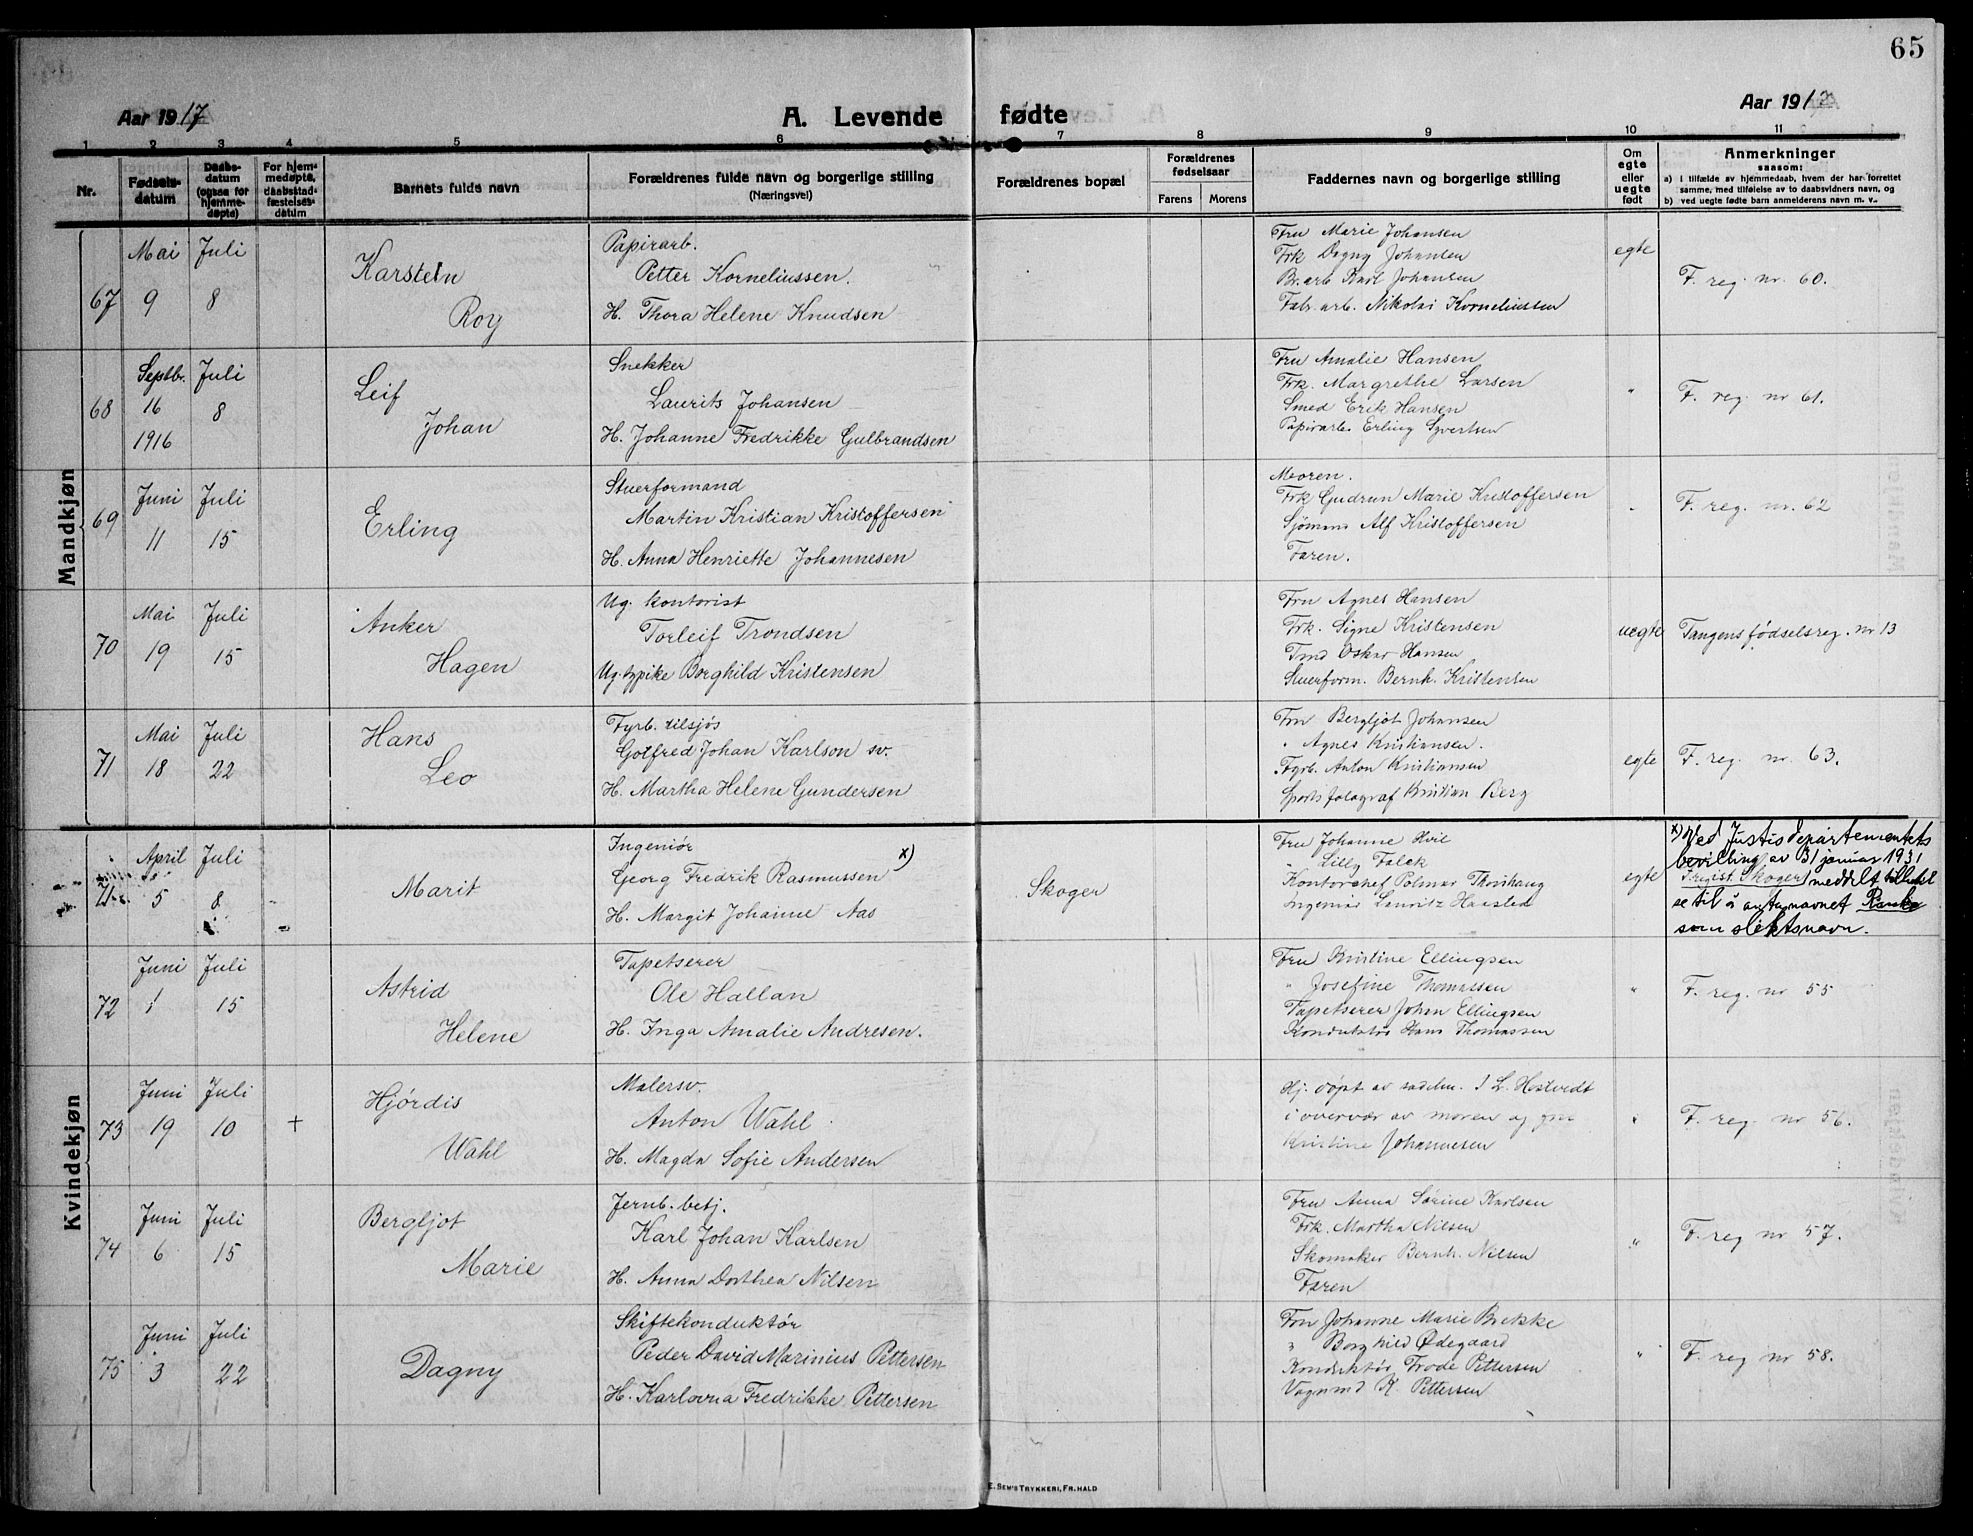 65
Aar 1917
A. Levende fødte
Aar 191
1 2 3 4 5 6 7 8 9 10 11
Nr.
Fødselsdatum
Daabsdatum (ogsaa for hjemmedøpte)
For hjemmedøpte, daabsstadfæstelsesdatum
Barnets fulde navn
Forældrenes fulde navn og borgerlige stilling
(Næringsvei)
Forældrenes bopæl
Forældrenes fødselsaar
Farens Morens
Faddernes navn og borgerlige stilling
Om egte eller uegte født
Anmerkninger
saasom:
a) i tilfælde av hjemmedaab, hvem der har forrettet
samme, med tilføielse av to daabsvidners navn, og
b) ved uegte fødte barn anmelderens navn m. v.
Mandkjøn
67
Mai 9
Juli 8
Karstein
Roy
Papirarb.
Petter Korneliussen.
H. Thora Helene Knudsen
Fru Marie Johansen
Frk Dagny Johansen
Br.arb Karl Johansen
Fabr.arb. Nikolai Korneliussen
egte
F. reg. nr. 60.
68
Septbr. 16 1916
Juli 8
Leif
Johan
Snekker
Laurits Johansen
H. Johanne Fredrikke Gulbrandsen
Fru Amalie Hansen
Frk. Margrethe Larsen
Smed Erik Hansen
Papirarb. Erling Syvertsen
"
F. reg. nr 61.
69
Juni 11
Juli 15
Erling
Stuerformand
Martin Kristian Kristoffersen
H. Anna Henriette Johannesen
Moren.
Frk Gudrun Marie Kristoffersen
Sjømann Alf Kristoffersen
Faren.
"
F. reg. nr. 62
70
Mai 19
Juli 15
Anker
Hagen
Ug. kontorist
Torleif Trondsen
Ug. typike Borghild Kristensen
Fru Agnes Hansen
Frk. Signe Kristensen
Tmd Oskar Hansen
Stuerform. Bernh. Kristensen
uegte
Tangens fødselsreg. nr 13
71
Mai 18
Juli 22
Hans
Leo
Fyrb. tilsjøs
Gotfred Johan Karlson sv.
H. Martha Helene Gundersen
Fru Bergljot Johansen
" Agnes Kristiansen.
Fyrb. Anton Kristiansen
Sportsfotograf Kristian Berg
egte
F. reg. nr. 63.
Kvindekjøn
71
April 5
Juli 8
Marit
Ingeniør
Georg Fredrik Rasmussen x)
H. Margit Johanne Aas
Skoger
Fru Johanne Hvil
" Lilly Falck
Kontorchef Polmar Thorhaug
Ingeniør Lauritz Haasted
egte
x) Ved Justisdepartementets
bevilling av 31 januar 1931
F.regist. Skoger) meddelt tillatel
se til å anta navnet
som slektsnavn.
72
Juni 1
Juli 15
Astrid
Helene
Tapetserer
Ole Hallan
H. Inga Amalie Andresen.
Fru Kristine Ellingsen
" Josefine Thomassen
Tapetserer Johan Ellingsen
Konduktør Hans Thomassen
"
F. reg. nr 55
73
Juni 19
Juli 10
+
Hjørdis
Wahl
Malersv.
Anton Wahl
H. Magda Sofie Andersen
Hj. døpt av sadelm. I L. Hestvedt
i overvær av moren og fru
Kristine Johannesen
"
F. reg. nr 56.
74
Juni 6
Juli 15
Bergljot
Marie
Jernb. betj.
Karl Johan Karlsen
H. Anna Dorthea Nilsen
Fru Anna Sørine Karlsen
Frk. Martha Nilsen
Skomaker Bernh. Nilsen
Faren
"
F. reg nr 57.
75
Juni 3
Juli 22
Dagny
Skiftekonduktør
Peder David Marinius Pettersen
H. Karlovna Fredrikke Pettersen
Fru Johanne Marie Brekke
" Borghild Ødegaard
Konduktør Frode Pettersen
Vognmd K. Pettersen
"
F. reg nr 58.
E. SEM'S TRYKKERI, FR.HALD